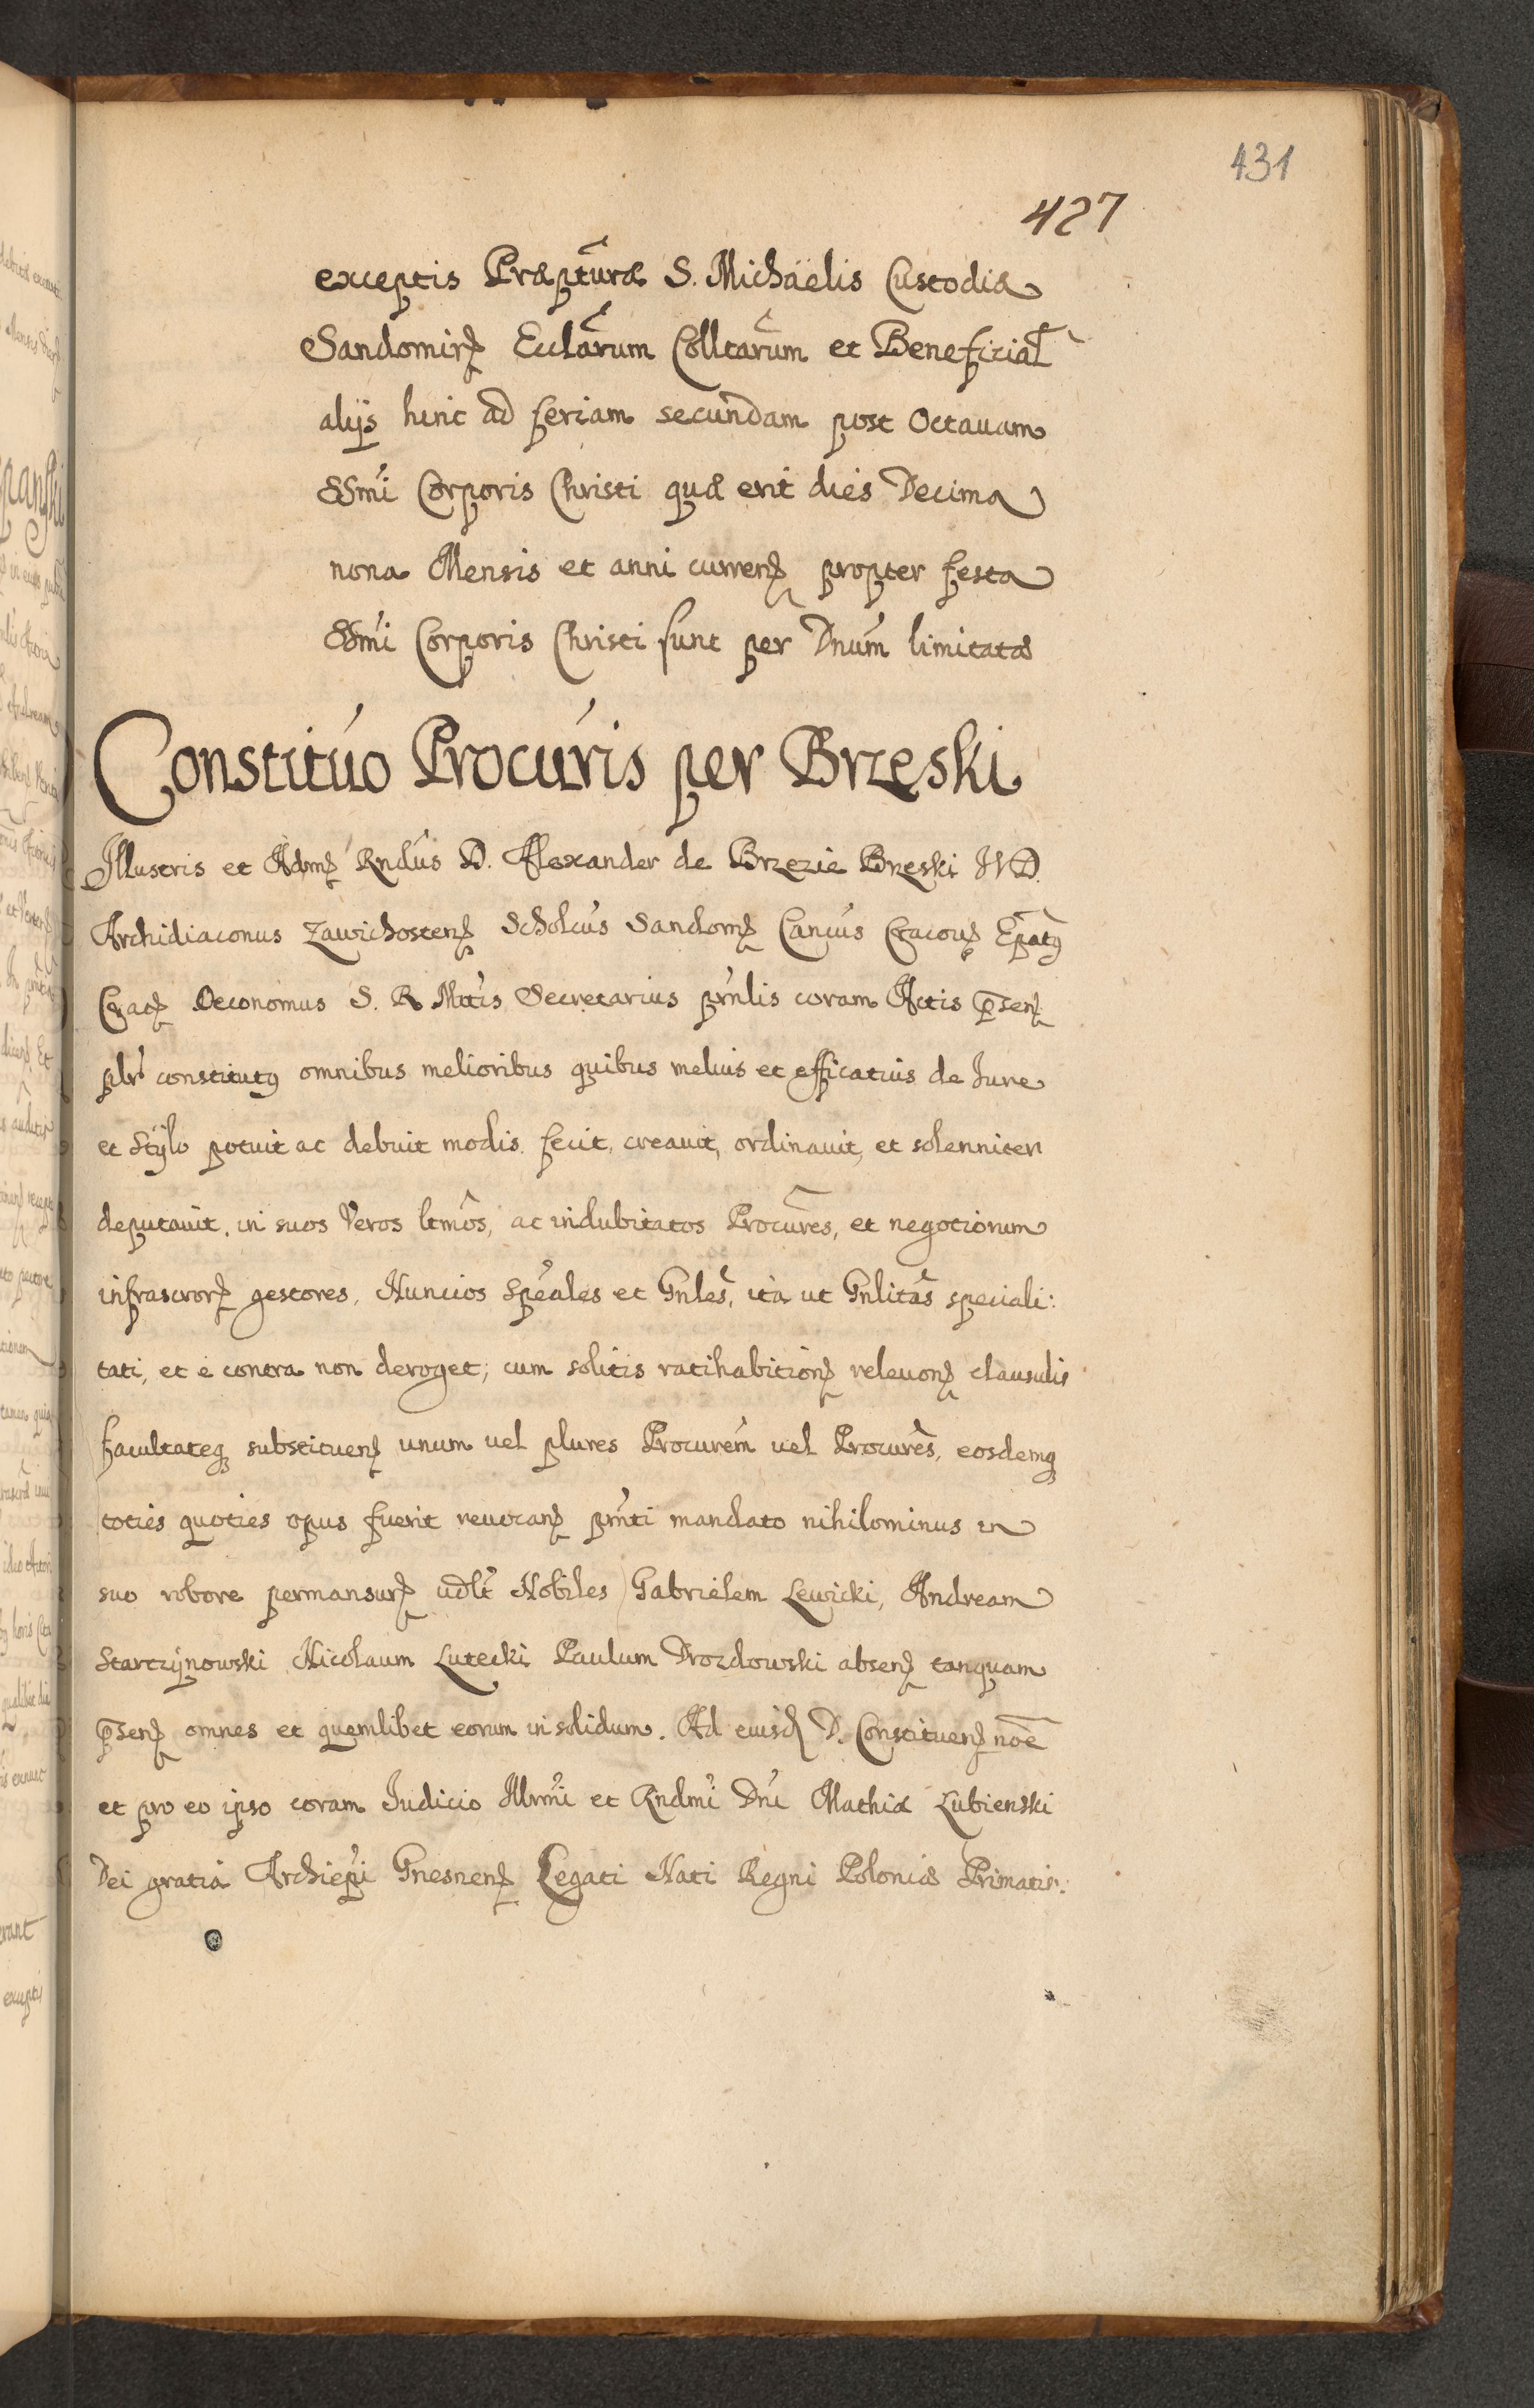 431
427
exceptis Præptũræ S. Michäelis Custodiæ
Sandomirꝭ Ecclãrum Colltarũm et Beneficiał
alijs hinc ad feriam secundam post Octauam
SSmi Corporis Christi quæ erit dies Decima
nona Mensis et anni currenꝭ propter festa
SSmi Corporis Christi sunt per Dnum limitatæ
Constituo Procuris per Brzeski
Illustris et Admꝭ Rndus D. Alexander de Brzezie Brzeski IVD.
Archidiaconus Zawichostenꝭ Scholcus Sandomꝭ Cancus Cracouꝭ Epatꝯ
Cracꝭ Oeconomus S. R. Mttis Secretarius prnlis coram Actis p̃senꝭ
plr constitutꝯ omnibus melioribus quibus melius et efficatius de Iure
et Stÿlo potuit ac debuit modis fecit, creauit, ordinauit, et solenniter
deputauit, in suos Veros ltmõs, ac indubitatos Procurẽs, et negotiorum
infrascrorꝭ gestores, Nuncios Spẽales et Gnlẽs, ita ut Gnlitãs speciali:
tati, et è contra non deroget; cum solitis ratihabitionꝭ releuonꝭ clausulis
facultateqꝫ substituenꝭ unum uel plures Procurem uel Procures, eosdemqꝫ
toties quoties opus fuerit reuocanꝭ prnti mandato nihilominus in
suo robore permansurꝭ vdlt Nobiles Gabrielem Lewicki, Andream
Starczÿnowski Nicolaum Lutecki Paulum Drozdowski absenꝭ tanquam
p̃senꝭ omnes et quemlibet eorum in solidum. Ad eiusd D. Constituenꝭ noẽ
et pro eo ipso coram Iudicio Illrmi et Rndmi Dni Mathiæ Lubienski
Dei gratia Archiepi Gnesnenꝭ Legati Nati Regni Poloniæ Primatis: